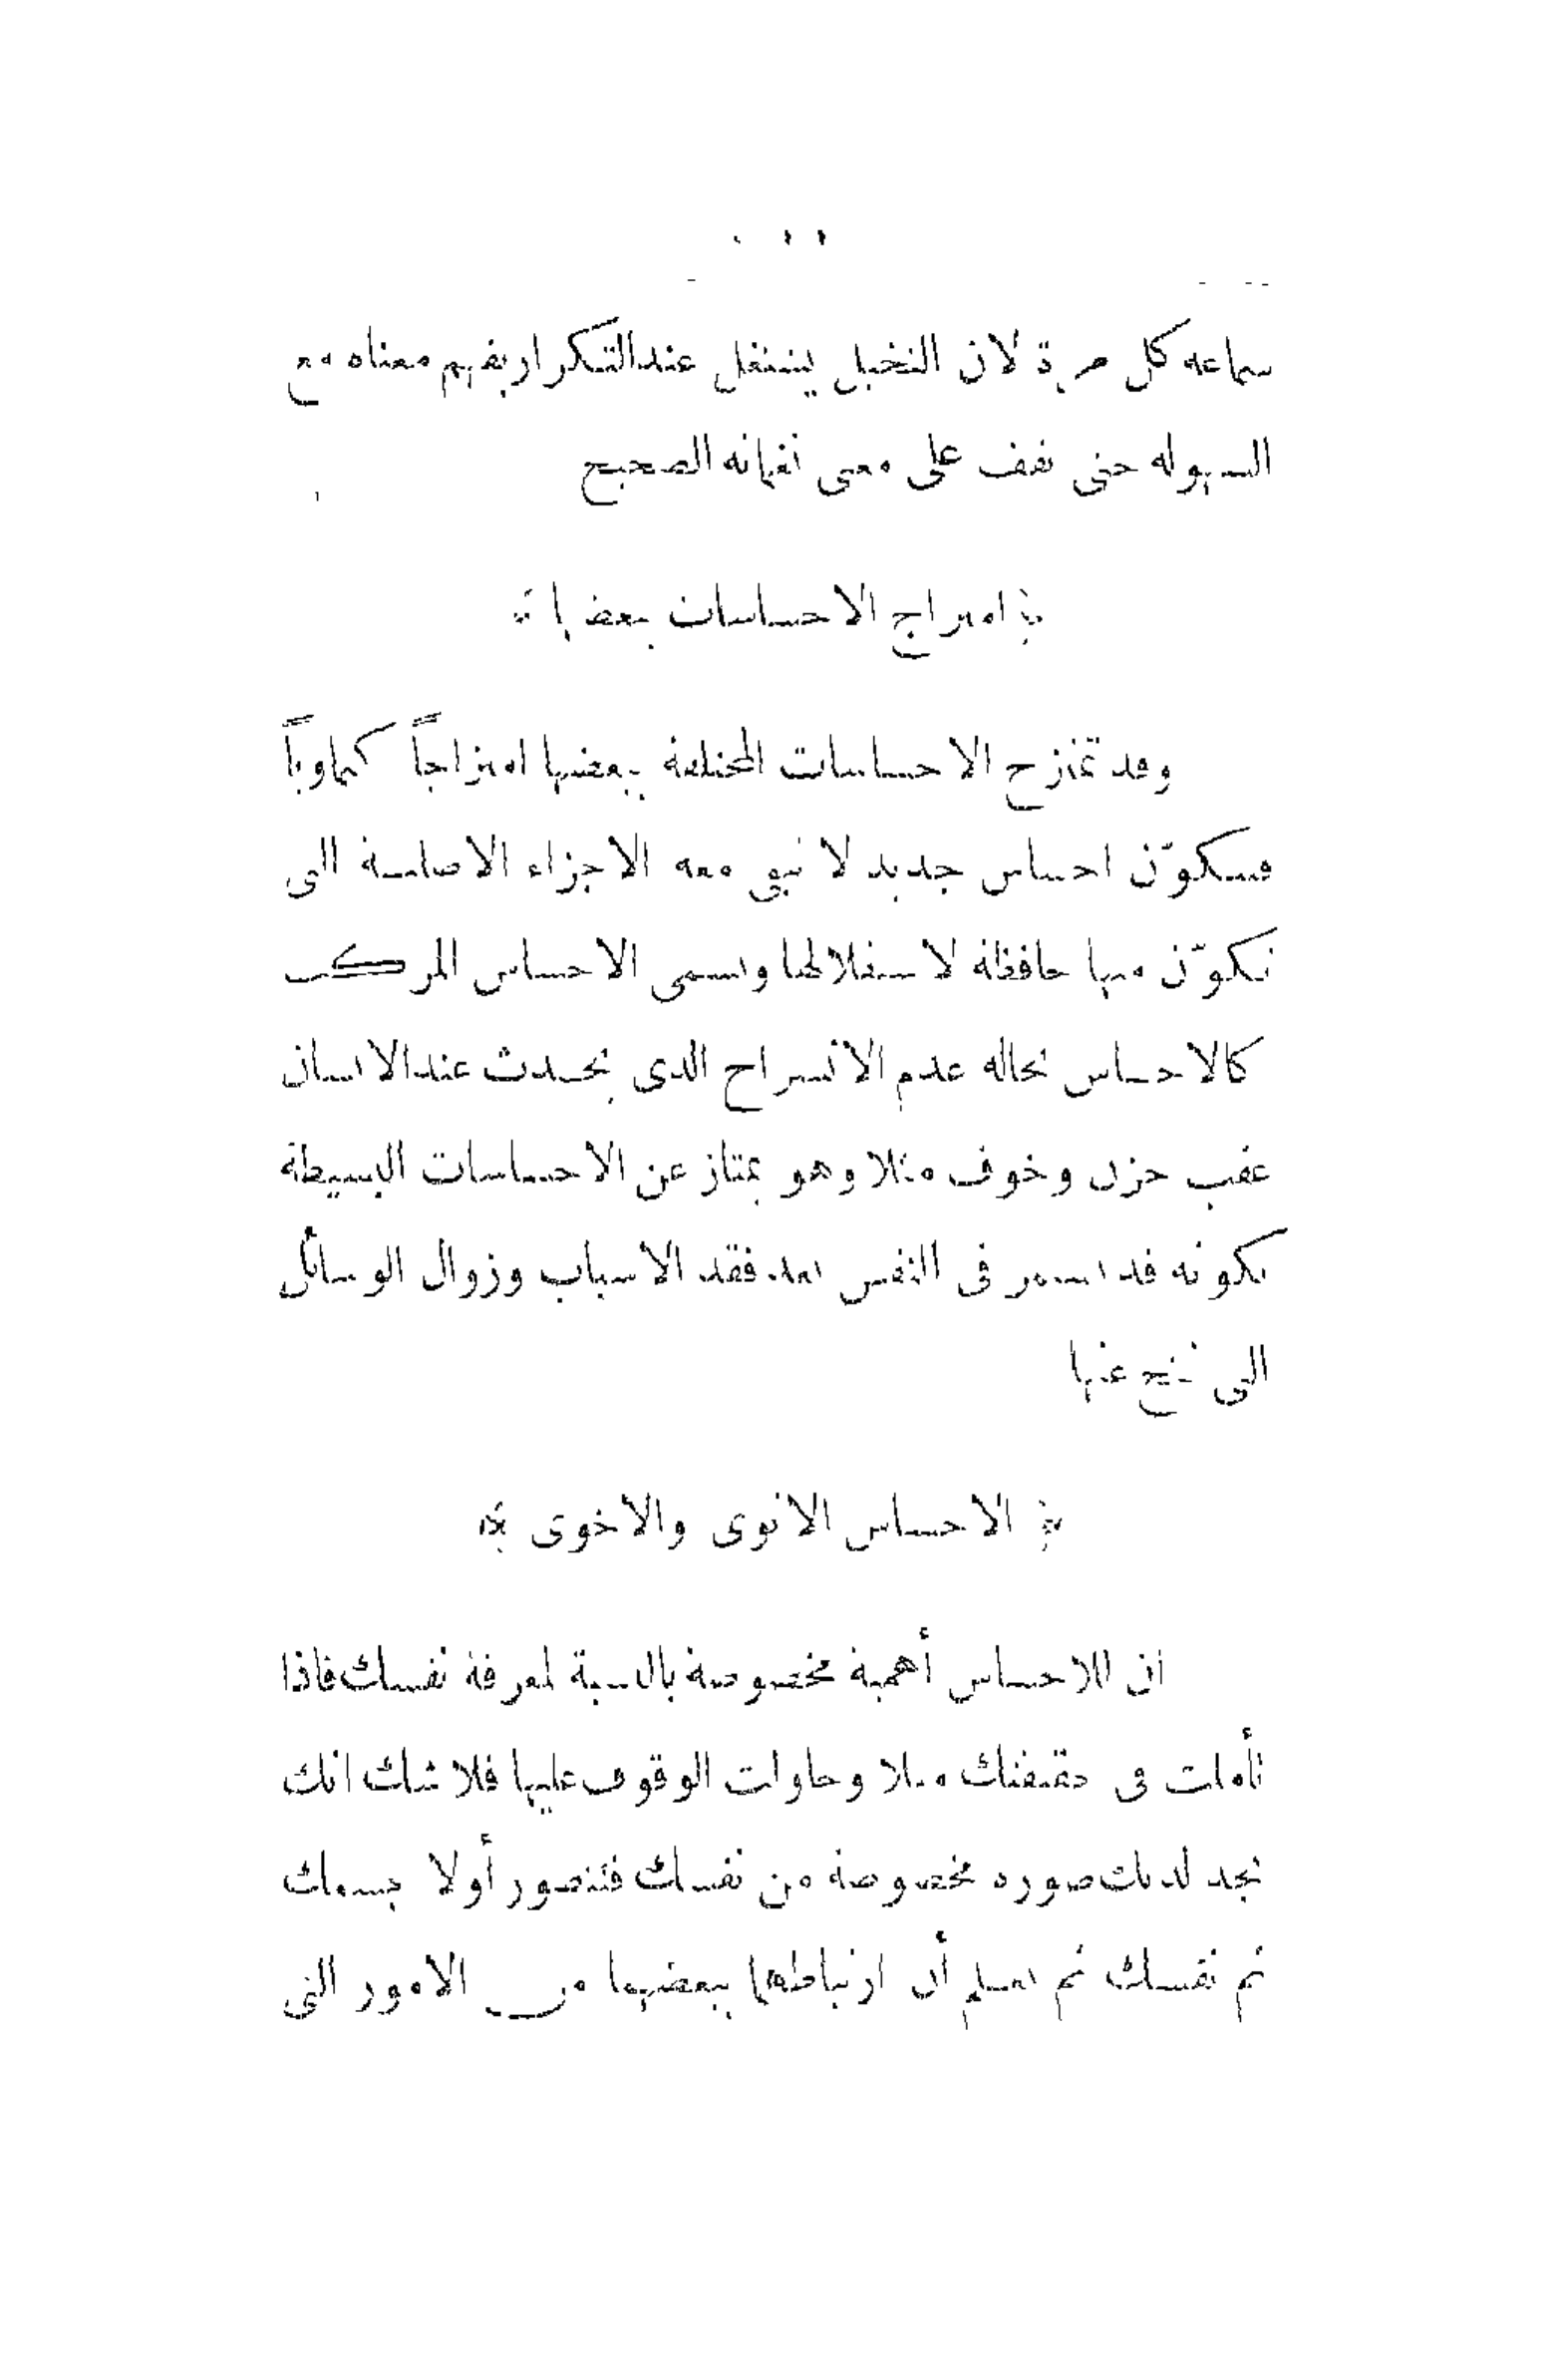 سماعه كل مرة لان التخيل يشتغل عند التكرار بفهم معناه مع
السهولة حتى نقف على معنى نغماته الصحيح
﴿ امتزاج الاحساسات ببعضها ﴾
وقد تمتزج الاحساسات المختلفة ببعضها امتزاجاً كيماوياً
فيتكوّن احساس جديد لا تبقى معه الاجزاء الاصلية التى
تكوّن منها حافظة لاستقلالها ويسمى الاحساس المركب
كالاحساس بحالة عدم الانشراح الذى يحدث عند الانسان
عقب حزن وخوف مثلا وهو يمتاز عن الاحساسات البسيطة
بكونه قد يستمر فى النفس بعد فقد الاسباب وزوال الوسائل
التى نتج عنها
﴿ الاحساس الانوى والاخوى ﴾
ان للاحساس أهمية مخصوصة بالنسبة لمعرفة نفسك فاذا
تأملت فى حقيقتك مثلا وحاولت الوقوف عليها فلا شك انك
تجد لديك صورة مخصوصة من نفسك فتتصور أولا جسمك
ثم نفسك ثم تعلم أن ارتباطهما ببعضهما من الامور التى